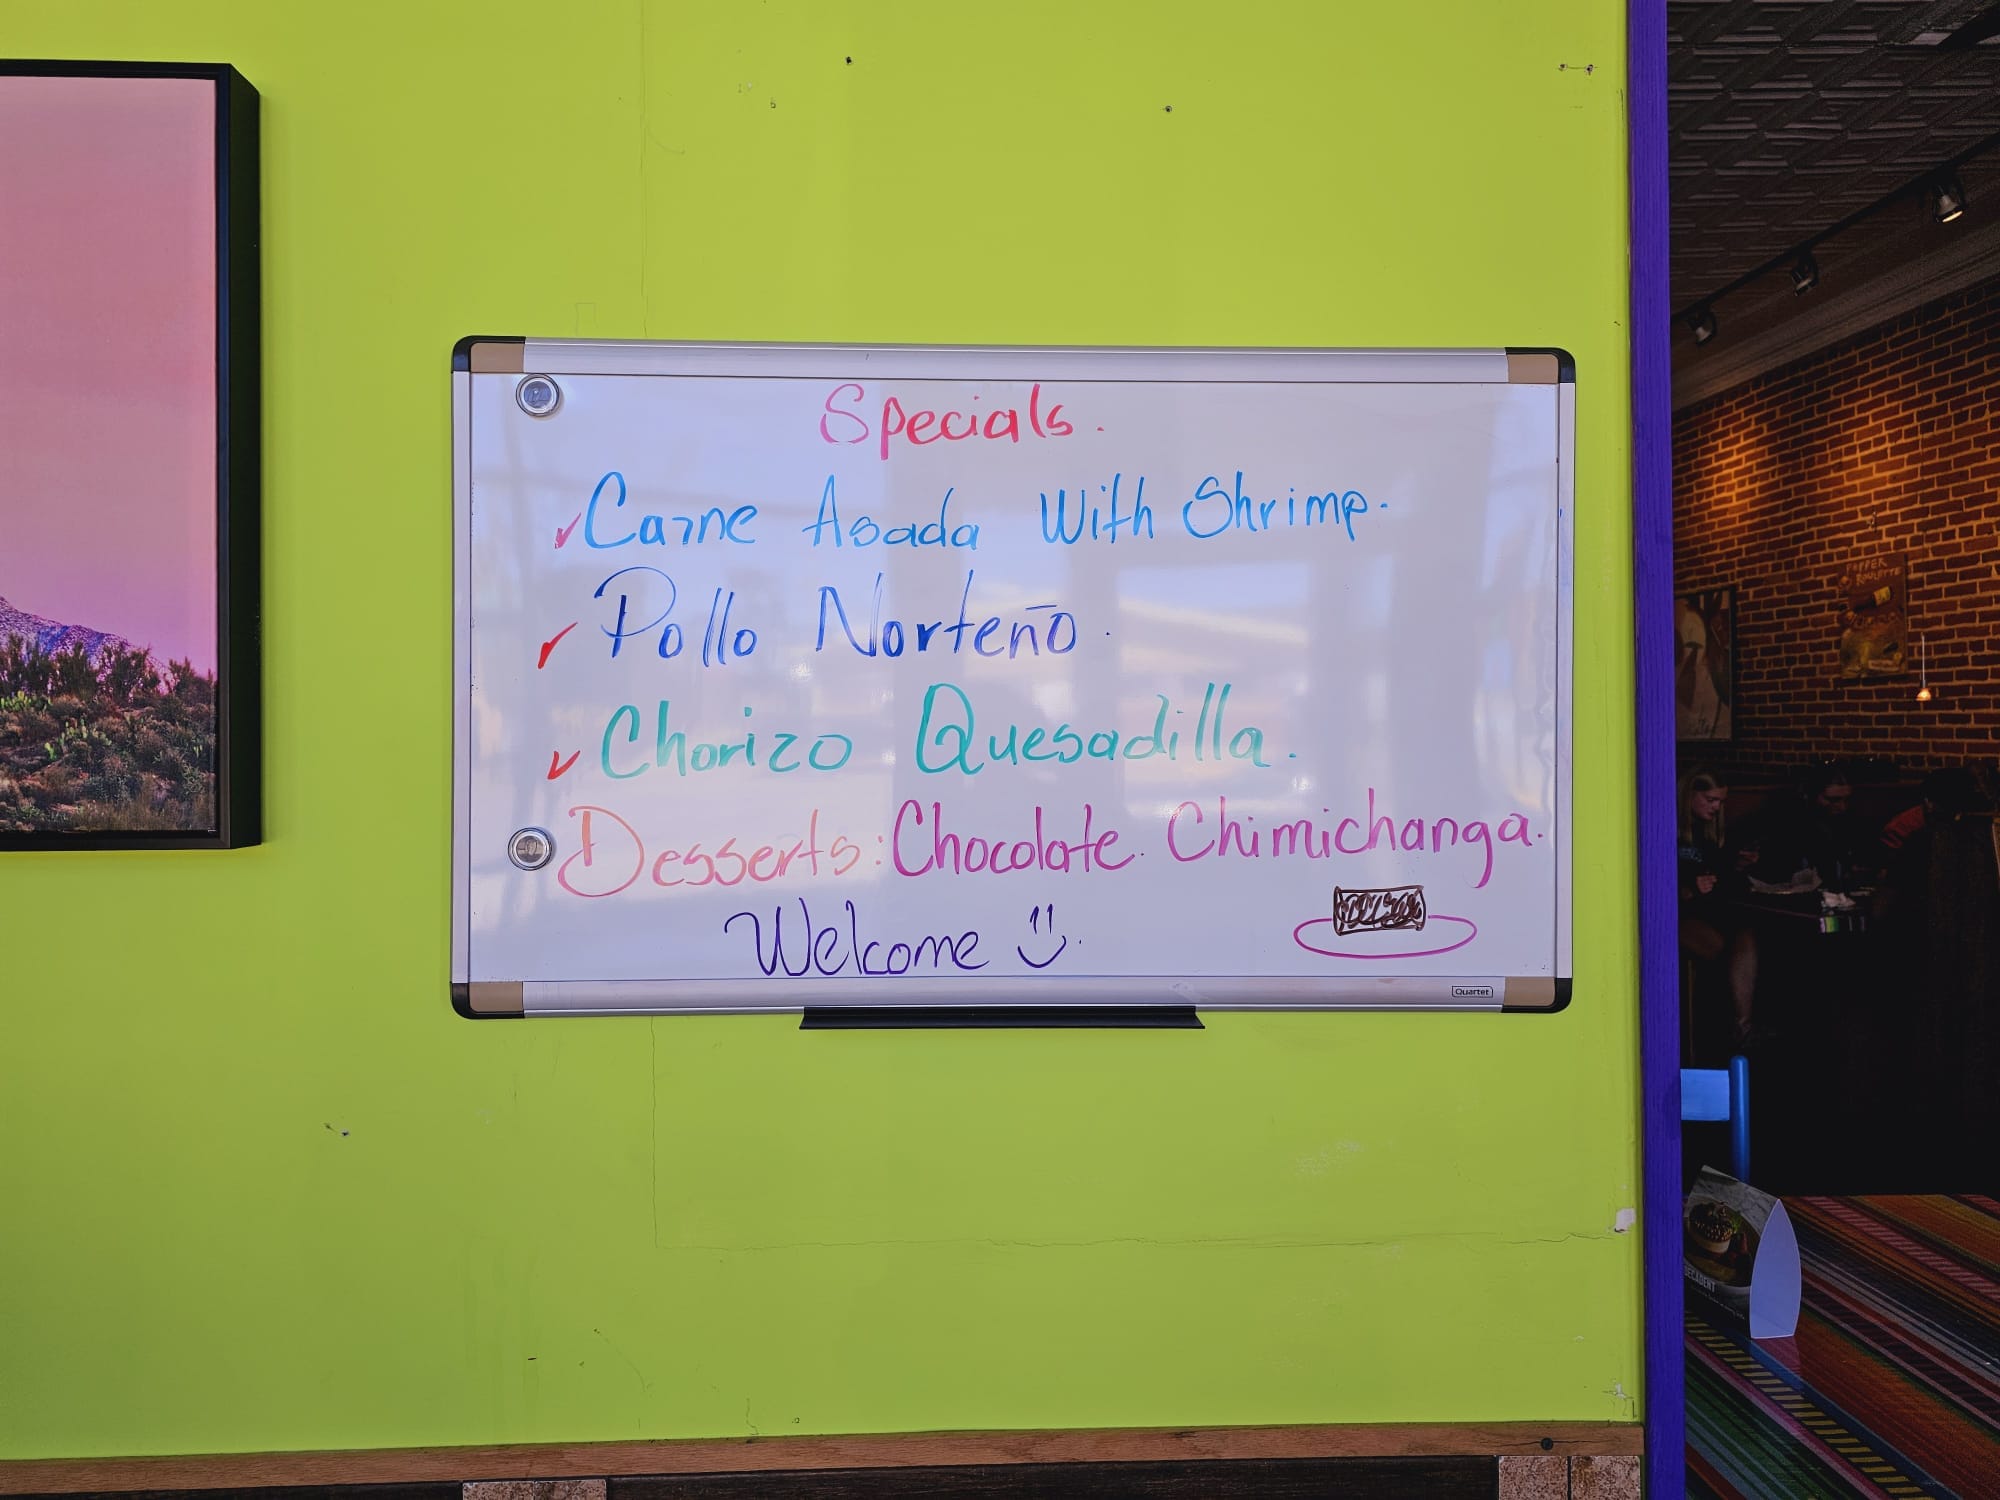 Specials.
✓ Carne Asada With Shrimp.
✓ Pollo Norteño.
✓ Chorizo Quesadilla.
Desserts: Chocolate. Chimichanga.
Welcome
Quartet
PEPPER
ROULETTE
DECADENT